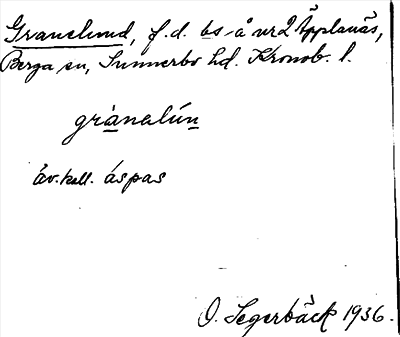 Granelund, f.d. bs å nr 2 Äpplanäs,
Berga sn, Sunnerbo hd. Kronob. l.
gránalún
äv. kall. áspas
O. Segerbäck 1936.